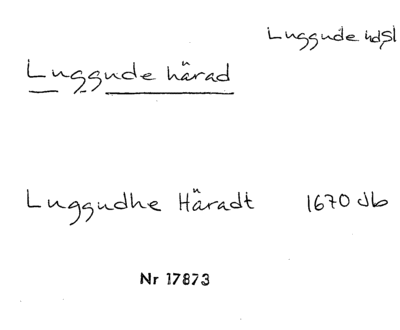 Luggude hdsl
Luggude härad
Luggudhe Häradt 1670 Jb
Nr 17873